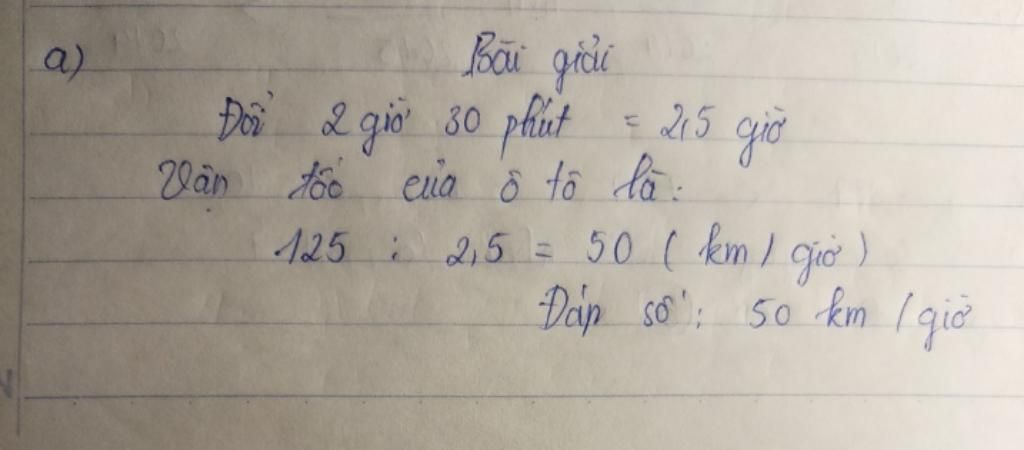 a) Bài giải
Đổi 2 giờ 30 phút = 2,5 giờ
Vận tốc của ô tô là:
125 : 2,5 = 50 ( km / giờ )
Đáp số : 50 km / giờ